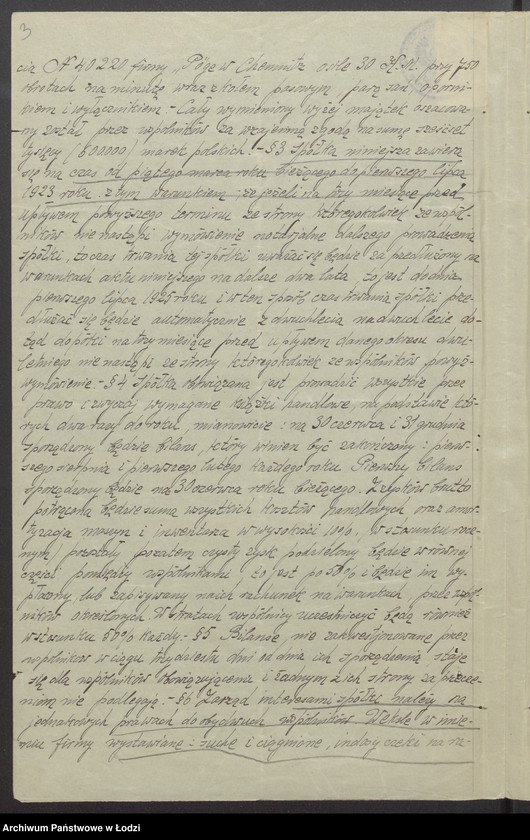 3
cia N 40220 firmy „Pöge w Chemnitz o sile 30 H.M. przy 750
obrotach na minutę wraz z kołem pasowym, parą szan, oporni-
kiem i wyłącznikiem. - Cały wymieniony wyżej majątek oszacowa-
ny został przez wspólników za wzajemną zgodą na sumę sześciset
tysięcy (600000) marek polskich. - § 3 Spółka niniejsza zawiera
się na czas od piątego marca roku bieżącego do pierwszego lipca
1923 roku z tym warunkiem, że jeżeli na trzy miesiące przed
upływem powyższego terminu ze strony któregokolwiek ze wspól-
ników nie nastąpi wymówienie notarjalne dalszego prowadzenia
spółki, to czas trwania tej spółki uważać się będzie za przedłużony na
warunkach aktu niniejszego na dalsze dwa lata, to jest do dnia
pierwszego lipca 1925 roku i w ten sposób czas trwania spółki prze-
dłużać się będzie automatycznie z dwuchlecia na dwuchlecie do-
tąd dopóki na trzy miesiące przed upływem danego okresu dwu-
letniego nie nastąpi ze strony któregokolwiek ze wspólników powyż-
wymówienie. - § 4 Spółka obowiązana jest prowadzić wszystkie przez
prawo i zwyczaj wymagane książki handlowe, na podstawie któ-
rych dwa razy do roku, mianowicie: na 30 czerwca i 31 grudnia
sporządzony będzie bilans, który winien być zakończony: pierw-
szego sierpnia i pierwszego lutego każdego roku. Pierwszy bilans
sporządzony będzie na 30 czerwca roku bieżącego. Z zysków brutto
potrącona będzie suma wszystkich kosztów handlowych oraz amor-
tyzacja maszyn i inwentarza w wysokości 10%, w stosunku rocz-
nym, pozostały pozatem czysty zysk podzielony będzie w równej
części pomiędzy wspólnikami, to jest po 50% i będzie im wy-
płacony, lub zapisywany na ich rachunek na warunkach, przez wspól-
ników określonych. W stratach wspólnicy uczestniczyć będą również
w stosunku 50% każdy. - § 5 Bilanse, nie zakwestjonowane przez
wspólników w ciągu trzydziestu dni od dnia ich sporządzenia stają
się dla wspólników obowiązujące i żadnym z ich strony zaprzecze-
niom nie podlegają. - § 6 Zarząd interesami spółki należy na
jednakowych prawach do obydwuch wspólników. Weksle w imie-
niu firmy wystawiane: suche i ciągnione, indosy czeki na ra-
Archiwum Państwowe w Łodzi